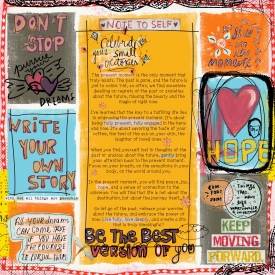 DON'T
STOP
pursue
your
DREAMS
WRITE
YOUR
OWN
STORY
All your dreams
CAN COME TRUE
IF YOU HAVE
THE COURAGE
TO PURSUE THEM
NOTE TO SELF
Celebrate
your small
victories
The present moment is the only moment that
truly exists. The past is gone, and the future is
yet to come. Yet, so often, we find ourselves
dwelling on regrets of the past or anxieties
about the future, missing the beauty and the
magic of right now.
I've learned that the key to a fulfilling life lies
in embracing the present moment. It's about
being fully present, fully engaged in the here
and now. It's about savoring the taste of your
coffee, the feel of the sun on your skin, the
laughter of loved ones.
When you find yourself lost in thoughts of the
past or anxious about the future, gently bring
your attention back to the present moment.
Focus on your breath, on the sensations in your
body, on the world around you.
In the present moment, you will find peace, joy,
hope, and a sense of connection to the
universe. You will find that life is not about the
destination, but about the journey itself.
So let go of the past, release your worries
about the future, and embrace the power of
now. Live fully, love deeply, and create a life
that is truly meaningful!
BE THE BEST
VERSION OF YOU
HOPE
KEEP
MOVING
FORWARD.